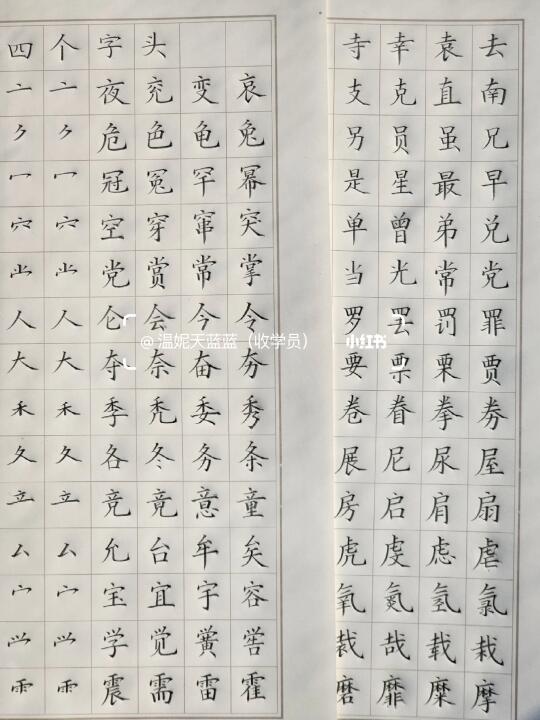 四 个 字 头
亠 亠 夜 兖 变 哀
⺈ ⺈ 危 色 龟 兔
冖 冖 冠 冤 罕 幂
穴 穴 空 穿 窜 突
龸 龸 党 赏 常 掌
人 人 仑 会 今 令
大 大 夺 奈 奋 夯
禾 禾 季 秃 委 秀
夂 夂 各 冬 务 条
立 立 竞 竟 意 童
厶 厶 允 台 牟 矣
宀 宀 宝 宜 宇 容
𭕄 𭕄 学 觉 黉 喾
⻗ ⻗ 震 需 雷 霍
寺 幸 袁 去
支 克 直 南
另 员 虽 兄
是 星 最 早
单 曾 弟 兑
当 光 常 党
罗 罢 罚 罪
要 票 栗 贾
卷 眷 拳 券
展 尼 尿 屋
房 启 肩 扇
虎 虔 虑 虐
氧 氮 氢 氯
裁 哉 载 栽
磨 靡 糜 摩
@温妮天蓝蓝（收学员）
小红书